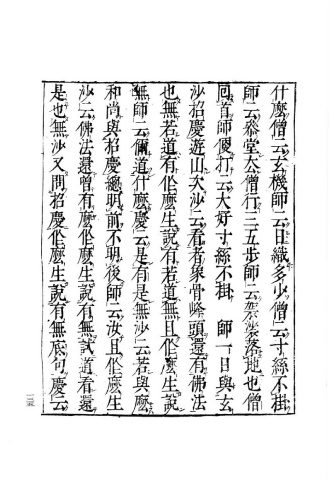 什麼僧云玄機師云日織多少僧云寸絲不掛
師云參堂去僧行三五步師云袈裟落地也僧
回首師便打云大好寸絲不掛　師一日與玄
沙招慶遊山次沙云看者衆骨峰頭還有佛法
也無若道有作麼生說有若道無且作麼生說
無師云儞道什麼慶云是有是無沙云若與麼
和尚與招慶總明前不明後師云汝且作麼生
沙云佛法還曾有麼作麼生說有無試道看還
是也無沙又問招慶作麼生說有無底句慶云